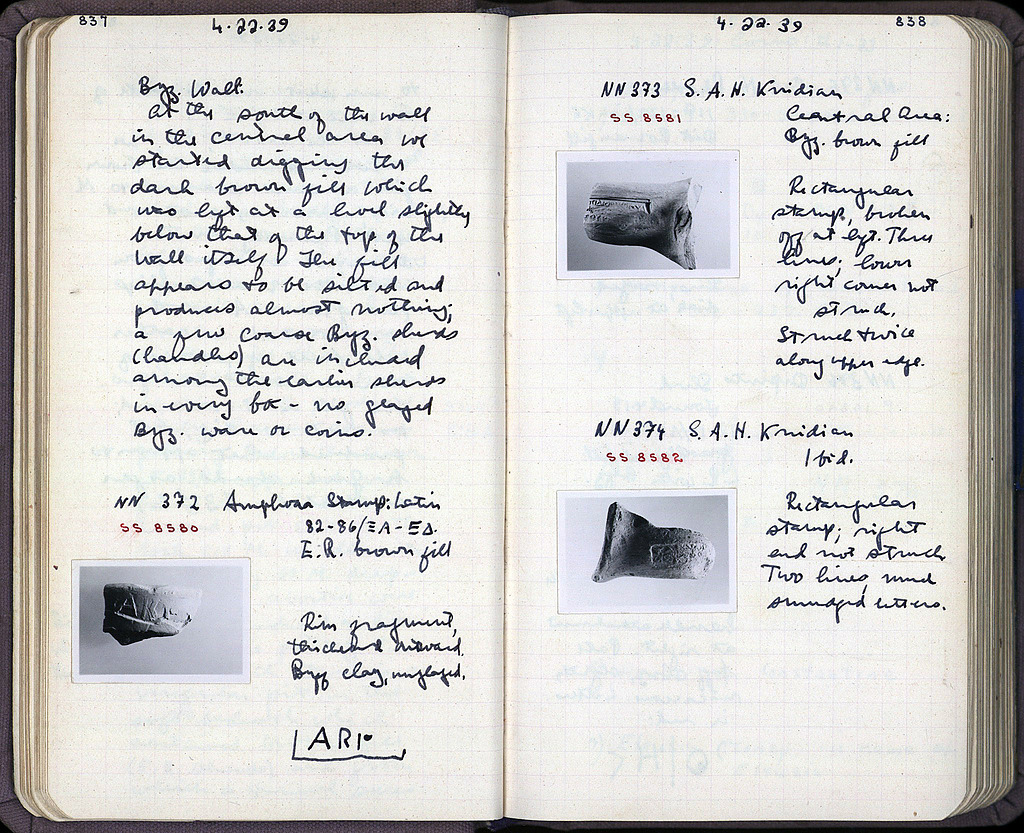 837
4·22·39
Byz. Wall:
At the south of the wall
in the central area we
started digging the
dark brown fill which
was left at a level slightly
below that of the top of the
wall itself. The fill
appears to be silted and
produces almost nothing;
a few coarse Byz. sherds
(handles) are included
among the earlier sherds
in every box - no glazed
Byz. ware or coins.
NN 372 Amphora Stamp: Latin
SS 8580
82-86/ΞΑ-ΞΔ.
E.R. brown fill
Rim fragment,
thickened outward.
Byz clay, unglazed.
ARI
838
4·22·39
NN 373 S.A.H. Knidian
SS 8581
Central Area:
Byz. brown fill
Rectangular
stamp, broken
off at left. Three
lines; lower
right corner not
struck.
Struck twice
along upper edge.
NN 374 S.A.H. Knidian
SS 8582
Ibid.
Rectangular
stamp; right
end not struck
Two lines, much
smudged letters.